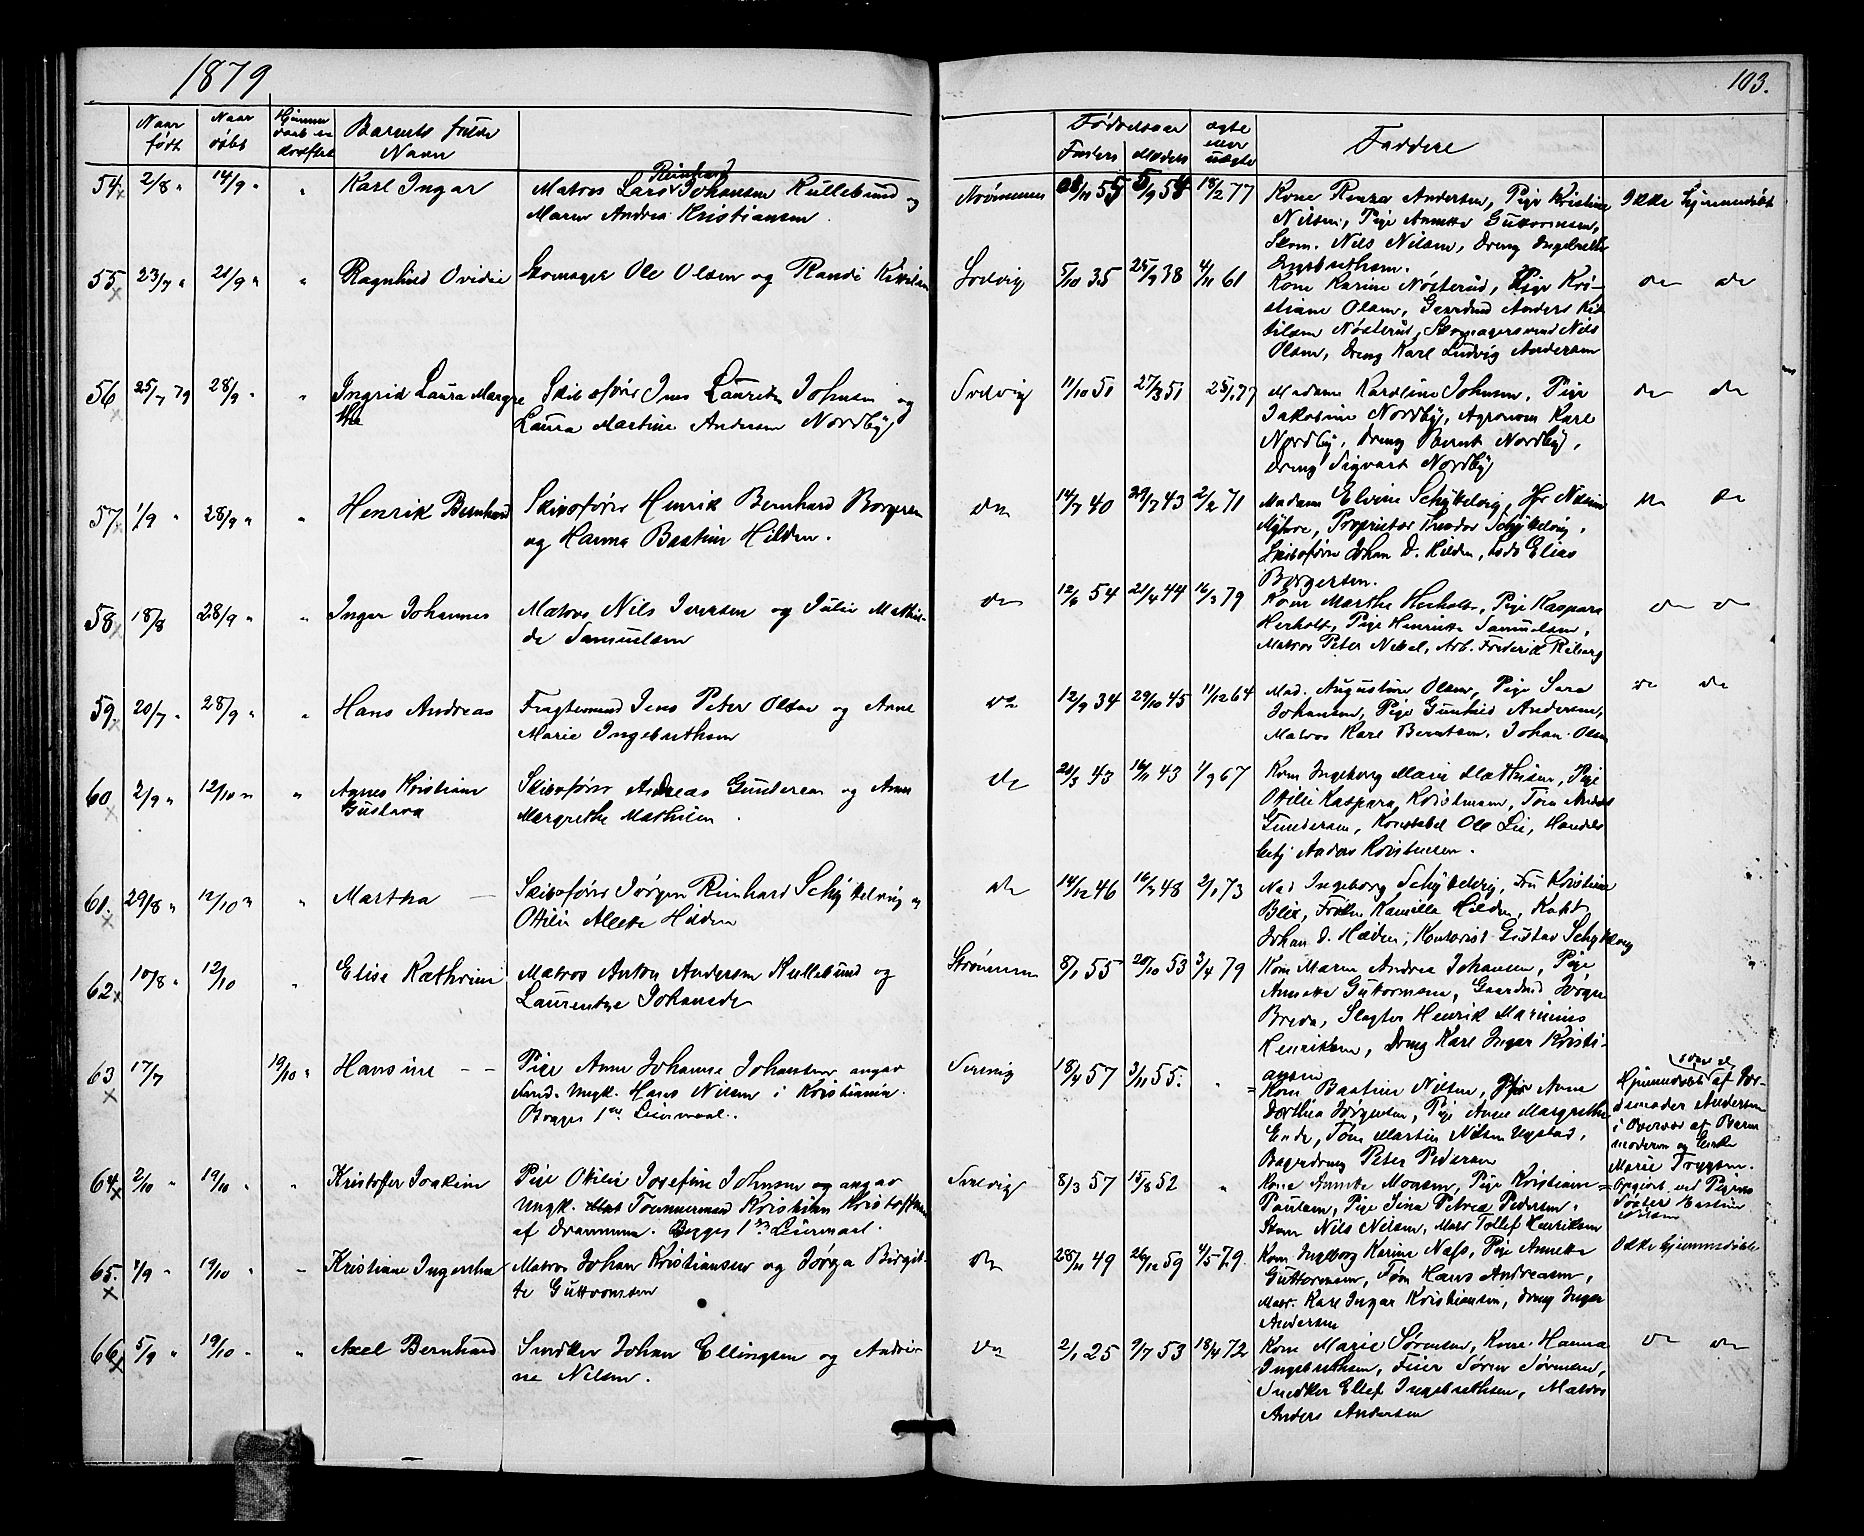 1879
103.
Naar født
Naar døbt
Hjemmedaab er stadfæstet
Barnets fulde Navn
Fødselsaar
Faders
Moders
ægte eller uægte
Faddere
54 2/8 " 14/9 " " Karl Ingar
Reinhard
Matros Lars Johansen Kullebund og
Maren Andrea Kristiansen.
Strømmen 55 5/9 54 18/2 77
Kone Andersen, Pige Kristine
Nilsen, Pige Annette Guttormsen,
Skom. Nils Nilsen, Dreng Ingebreth
Ingebrethsen.
Ikke hjemmedøbt
55 23/7 " 21/9 " " Ragnhild Ovidie
Skomager Ole Olsen og Randi Kittilsen
Svelvig 5/10 35 25/7 38 4/11 61
Kone Karine Nøsterud, Pige Kri-
stiane Olsen, Gaardmd Anders Kit-
tilsen Nøsterud, Skomagersvend Nils
Olsen, Dreng Karl Ludvig Andersen
do do
56 25/7 79 28/9 " " Ingrid Laura Margre
the
Skibsfører Jens Lauritz Johnsen og
Laura Martine Andersen Nordby
Svelvig 11/10 51 27/3 51 25/1 77
Madame Karoline Johnsen, Pige
Jakobine Nordby, Agronom Karl
Nordby, Dreng Bernt Nordby,
Dreng Sigvart Nordby
do do
57 1/9 " 28/9 " " Henrik Bernhard
Skibsfører Henrik Bernhard Borgersen
og Hanna Bastine Hilden.
do 14/7 40 29/7 43 2/2 71
Madam Elvine Schykelvig, Jfr
Myhre, Proprietær Theodor Schykelvig,
Skibsfører Johan D. Hilden, Elias
Borgersen.
do do
58 18/8 28/9 " " Inger Johannes
Matros Nils Iversen og Julie Mathil-
de Samuelsen
do 12/6 54 21/4 44 16/3 79
Kone Marthe Herholt, Pige Kaspara
Herholt, Pige Henriette Samuelsen,
Matros Peter Nebel, Arb. Frederik Riberg
do do
59 20/7 " 28/9 " " Hans Andreas
Fragtemand Jens Peter Olsen og Anne
Marie Ingebrethsen
do 12/9 34 29/10 45 11/12 64
Mad. Augustine Olsen, Pige Sara
Johansen, Pige Gunhild Andersen,
Matros Karl Berntsen, Johan Olsen
do do
60 2/9 " 12/10 " " Agnes Kristiane
Gustava
Skibsfører Andreas Gundersen og Anne
Margrethe Mathisen.
do 21/3 43 16/11 43 1/9 67
Kone Ingeborg Marie Mathisen, Pige
Otilie Kaspara Kristensen, Tøm. Anders
Gundersen, Konstabel Ole Lie, Handels
betj Anders Kristensen.
61. 29/8 " 12/10 " " Martha —
Skibsfører Jørgen Reinhard Schykelvig og
Ottilie Alette Hilden
do 14/12 46 16/7 48 2/1 73
Mad Ingeborg Schykelvig, Fru Kristine
Blix, Frøken Kamilla Hilden, Kapt.
Johan D. Hilden, Kontorist Gustav Schykelvig
62 10/8 " 12/10 " Elise Kathrine
Matros Anton Andersen Kullebund og
Laurentze Johansdr
Strømmen 8/1 55 20/10 53 3/4 79
Kone Maren Andrea Johansen, Pige
Annette Guttormsen, Gaardmd Jørgen
Breda, Slagter Henrik Marinius
Henriksen, Dreng Karl Ingar Kristi-
ansen
63 17/7 19/10 " Hansine — —
Pige Anne Johanne Johansen angav
fad. Ungk. Hans Nilsen i Kristiania.
Begges 1ste Leiermaal.
Svelvig 18/4 57 3/11 55. "
Kone Bastine Nilsen, Pige Anne
Dorthea Jørgensen, Pige Anne Margrethe
Ende, Tøm Martin Nilsen Ugstad,
Bagerdreng Peter Pedersen
Hjemmedøbt af Jor-
demoder Andersen
i Overvær af Barne
moderen og Enke
Marie Tryggsen.
Opgivet ved Pigens
Søster Bastine
Nilsen
64 2/10 " 19/10 " " Kristoffer Joakim
Pige Otilie Josefine Johnsen og angav
Ungk. Tømmermand Kristian Kristoffersen
af Drammen. Begges 1ste Leiermaal.
Svelvig 8/3 57 15/8 52 "
Kone Annette Monsen, Pige Kristiane
Paulsen, Pige Sina Petrea Pedersen,
Skom Nils Nilsen, Matr Tollef Henriksen
65. 1/9 " 19/10 " — Kristiane Ingertha
Matros Johan Kristiansen og Jørga Birgit-
te Guttormsen
do 28/11 49 26/12 59 4/5 79.
Kone Ingeborg Karine Næss, Pige Annette
Guttormsen, Tøm Hans Andreasen,
Matr. Karl Ingar Kristiansen, Dreng Inger
Andersen
Ikke hjemmedøbt
66 5/9 " 19/10 " " Axel Bernhard
Snedker Johan Ellingsen og Andri-
ne Nilsen.
do 2/1 25 9/7 53 18/4 72
Kone Marie Sørensen, Kone Hanna
Ingebrethsen, Feier Søren Sørensen,
Snedker Ellef Ingebrethsen, Matros
Anders Andersen
do do